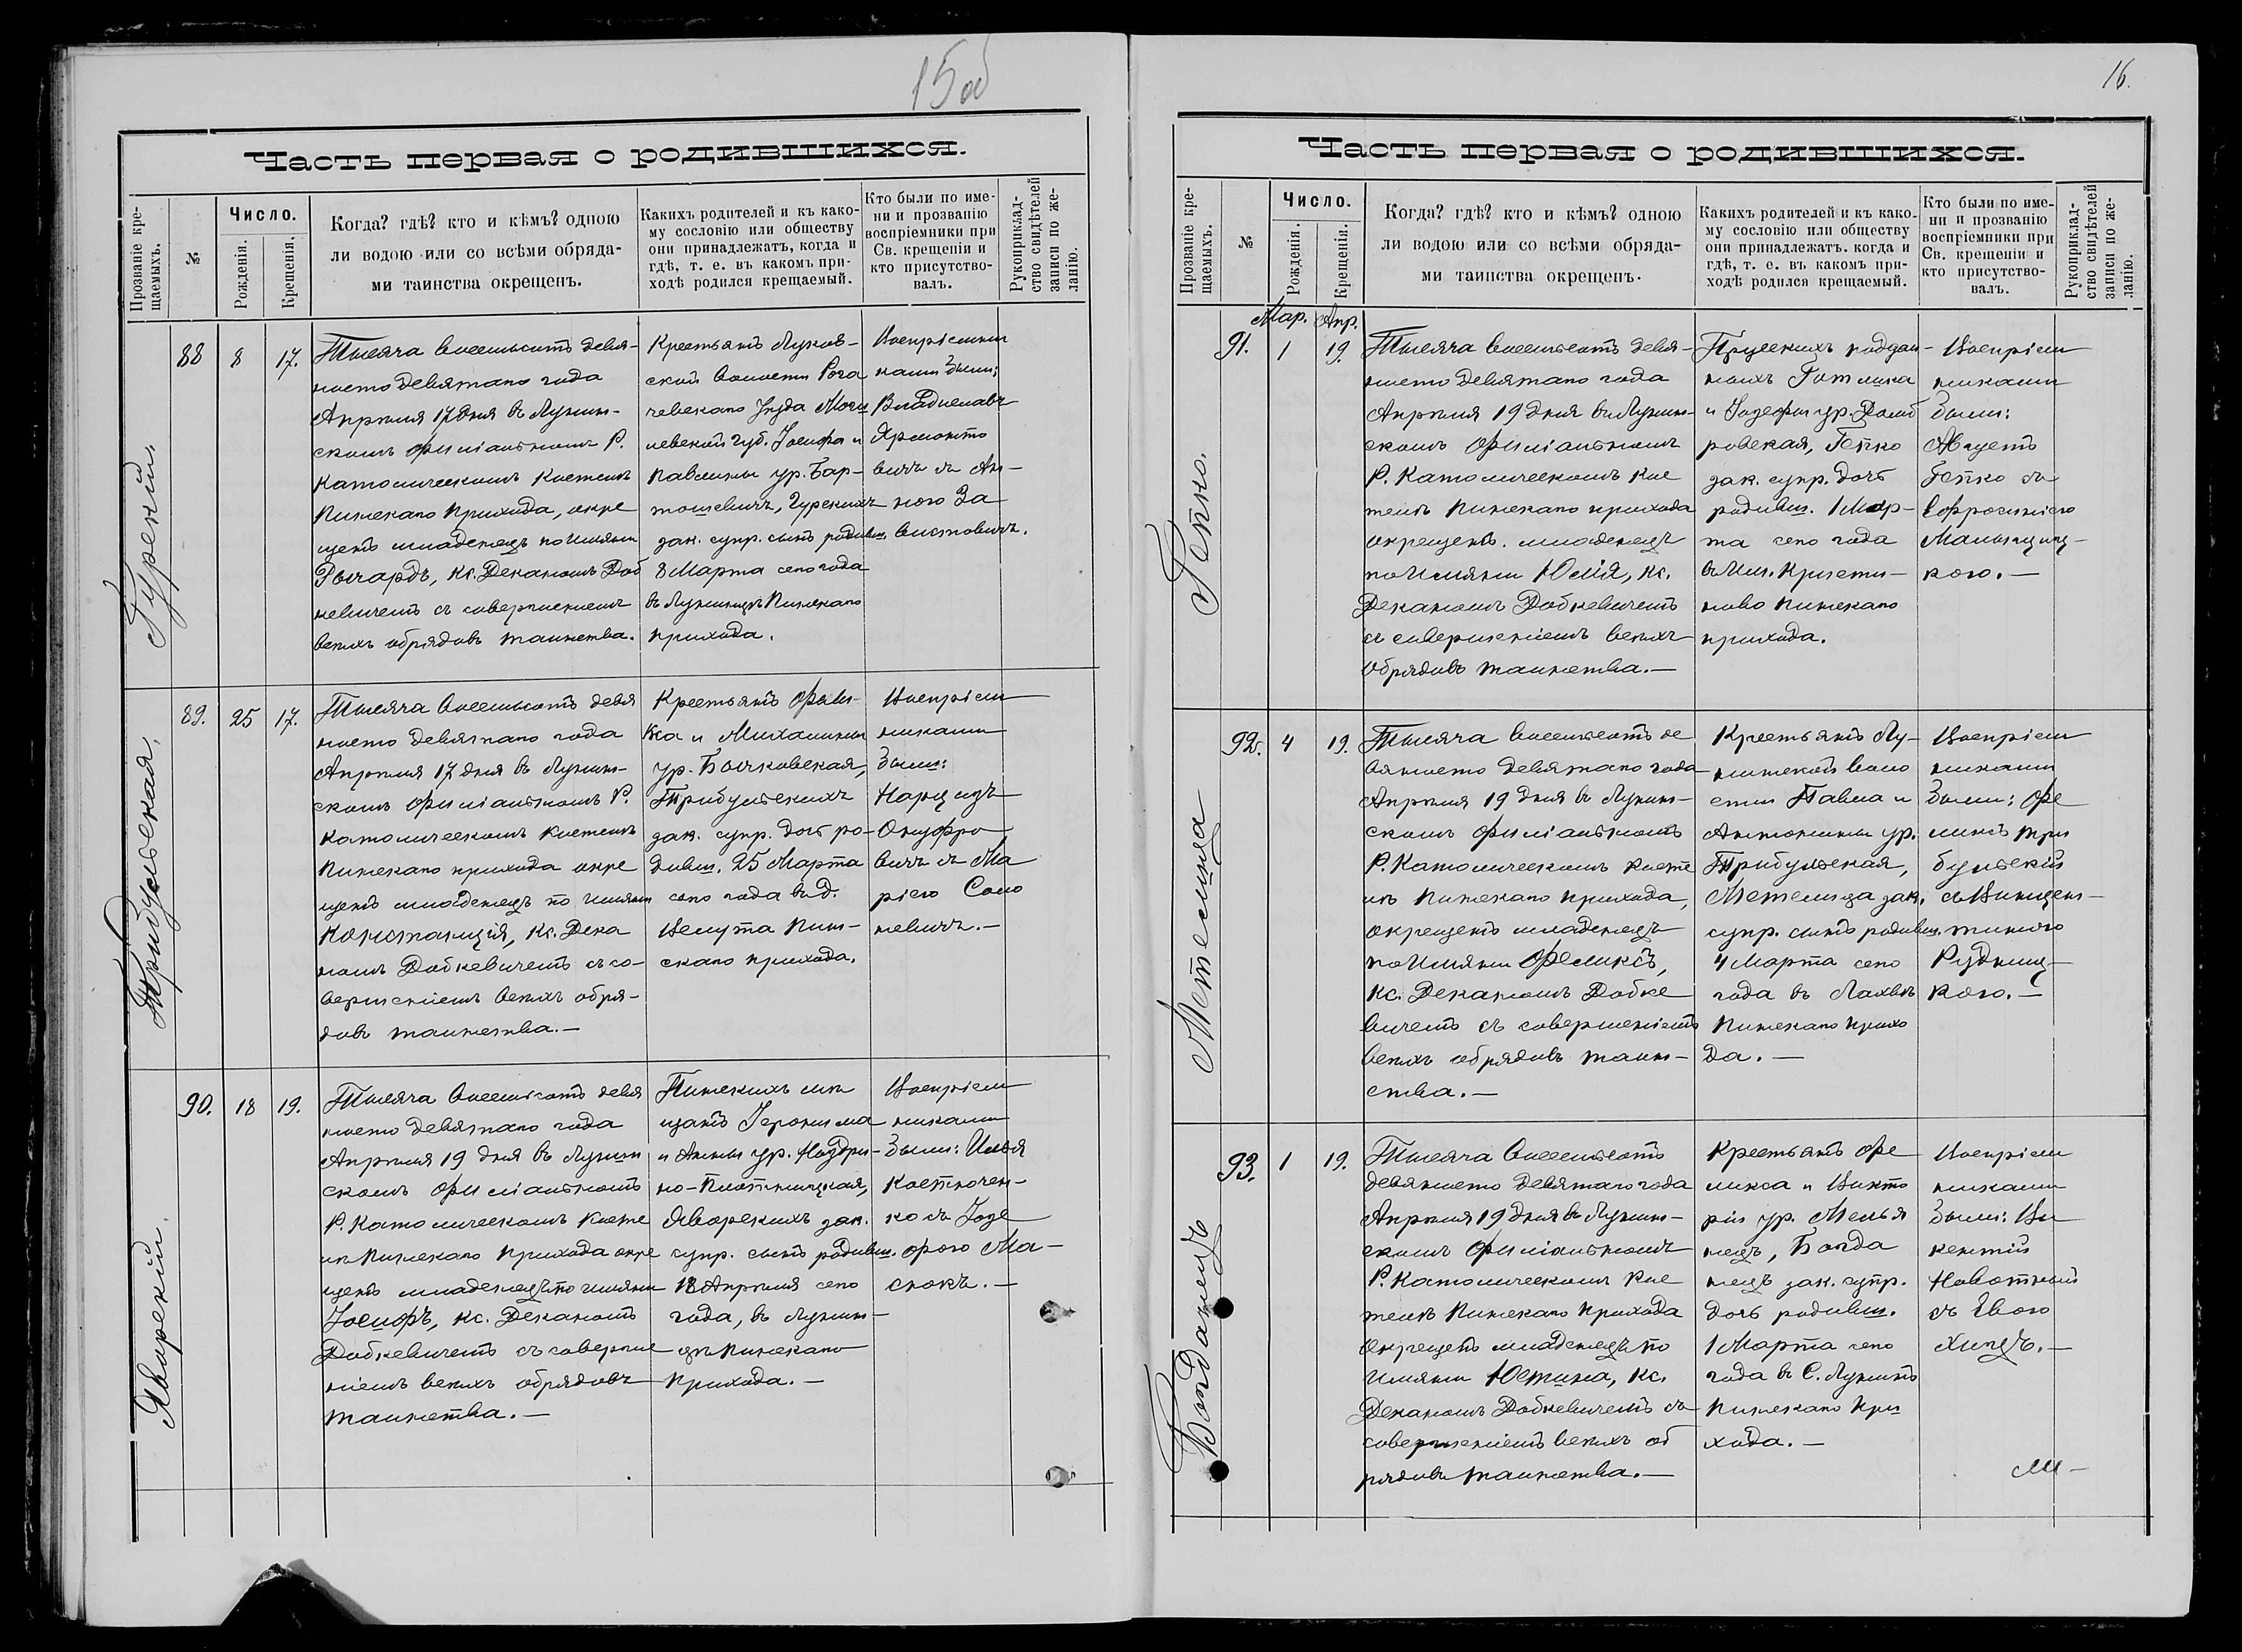 15об
Часть первая о родившихся.
Прозваніе кре-
щаемыхъ.
№
Число.
Рожденія.
Крещенія.
Когда? гдѣ? кто и кѣмъ? одною
ли водою или со всѣми обряда-
ми таинства окрещенъ.
Какихъ родителей и къ како-
му сословію или обществу
они принадлежатъ, когда и
гдѣ, т. е. въ какомъ при-
ходѣ родился крещаемый.
Кто были по име-
ни и прозванію
воспріемники при
Св. крещеніи и
кто присутство-
валъ.
Рукоприклад-
ство свидѣтелей
записи по же-
ланію.
Гурскій
88
8
17.
Тысяча восемьсотъ девя-
носто девятаго года
Апрѣля 17 дня въ Лунин-
скомъ филіальномъ Р.
Католическомъ костелѣ
Пинскаго прихода, окре
щенъ младенецъ по имяни
Рычардъ, кс. Деканомъ Доб
кевичемъ съ совершеніемъ
всѣхъ обрядовъ таинства.
Крестьянъ Луков-
ской волости Рога
чевскаго уѣзда Моги
левской губ. Іосифа и
Павлины ур. Бар-
тошевичъ, Гурскихъ
зак. супр. сынъ родивш.
8 Марта сего года
въ Лунинцѣ Пинскаго
прихода.
Воспріемни
ками были:
Владиславъ
Ярмонто
вичъ съ Ан-
ною За
вистовичъ.
Трибульская.
89.
25
17.
Тысяча восемьсотъ девя
носто девятаго года
Апрѣля 17 дня въ Лунин-
скомъ филіальномъ Р.
Католическомъ костелѣ
Пинскаго прихода окре
щенъ младенецъ по имяни
Констанція, кс. Дека
номъ Добкевичемъ съ со-
вершеніемъ всѣхъ обря-
довъ таинства.—
Крестьянъ Фели-
кса и Михалины
ур. Бычковская,
Трибульскихъ
зак. супр. дочь ро-
дивш. 25 Марта
сего года въ д.
Велута Пин-
скаго прихода.
Воспріем
никами
были:
Нарцизъ
Онуфро
вичъ съ Ма
ріею Само
невичъ.—
Яворскій.
90.
18
19.
Тысяча восемьсотъ девя
носто девятаго года
Апрѣля 19 дня въ Лунин
скомъ филіальномъ
Р. Католическомъ косте
лѣ Пинскаго прихода окре
щенъ младенецъ по имяни
Іосифъ, кс. Деканомъ
Добкевичемъ съ соверше
ніемъ всѣхъ обрядовъ
таинства.—
Пинскихъ мѣ
щанъ Іеронима
и Анны ур. Ноздри-
но-Плотницкая,
Яворскихъ зак.
супр. сынъ родивш.
18 Апрѣля сего
года, въ Лунин-
цѣ Пинскаго
прихода.—
Воспріем
никами
были: Илья
Костючен-
ко съ Іозе
фою Ма-
снокъ.—
16.
Часть первая о родившихся.
Прозваніе кре-
щаемыхъ.
№
Число.
Рожденія.
Крещенія.
Когда? гдѣ? кто и кѣмъ? одною
ли водою или со всѣми обряда-
ми таинства окрещенъ.
Какихъ родителей и къ како-
му сословію или обществу
они принадлежатъ. когда и
гдѣ, т. е. въ какомъ при-
ходѣ родился крещаемый.
Кто были по име-
ни и прозванію
воспріемники при
Св. крещеніи и
кто присутство-
валъ.
Рукоприклад-
ство свидѣтелей
записи по же-
ланію.
Мар.
Апр.
Гепко.
91.
1
19.
Тысяча восемьсотъ девя-
носто девятаго года
Апрѣля 19 дня въ Лунин-
скомъ филіальномъ
Р. Католическомъ кос
телѣ Пинскаго прихода
окрещенъ младенецъ
по имяни Юлія, кс.
Деканомъ Добкевичемъ
съ совершеніемъ всѣхъ
обрядовъ таинства.—
Прусскихъ поддан-
ныхъ Готлика
и Іозефы ур. Домб
ровская, Гепко
зак. супр. дочь
родивш. 1 Мар-
та сего года
въ им. Кристи-
ново Пинскаго
прихода.
Воспріем
никами
были:
Августъ
Гепко съ
Ефросиніею
Малышиц-
кою.—
Метелица
92.
4
19.
Тысяча восемьсотъ де
вяносто девятаго года
Апрѣля 19 дня въ Лунин-
скомъ филіальномъ
Р. Католическомъ косте
лѣ Пинскаго прихода,
окрещенъ младенецъ
по имяни Феликсъ,
кс. Деканомъ Добке
вичемъ съ совершеніемъ
всѣхъ обрядовъ таин-
ства.—
Крестьянъ Лу-
нинской воло
сти Павла и
Антонины ур.
Трибульская,
Метелица зак.
супр. сынъ родивш.
4 Марта сего
года въ Лахвѣ
Пинскаго прихо
да.—
Воспріем
никами
были: Фе
ликсъ Три
бульскій
съ Винцен-
тиною
Рудниц-
кою.—
Богданецъ
93.
1
19.
Тысяча восемьсотъ
девяносто девятаго года
Апрѣля 19 дня въ Лунин-
скомъ филіальномъ
Р. Католическомъ кос
телѣ Пинскаго прихода
окрещенъ младенецъ по
имяни Юстина, кс.
Деканомъ Добкевичемъ съ
совершеніемъ всѣхъ об
рядовъ таинства.—
Крестьянъ Фе
ликса и Викто
ріи ур. Мелья
нецъ, Богда
нецъ зак. супр.
дочь родивш.
1 Марта сего
года въ С. Лунинъ
Пинскаго при
хода.—
Воспріем
никами
были: Ви
кентій
Новотный
съ Евою
Хицъ.—